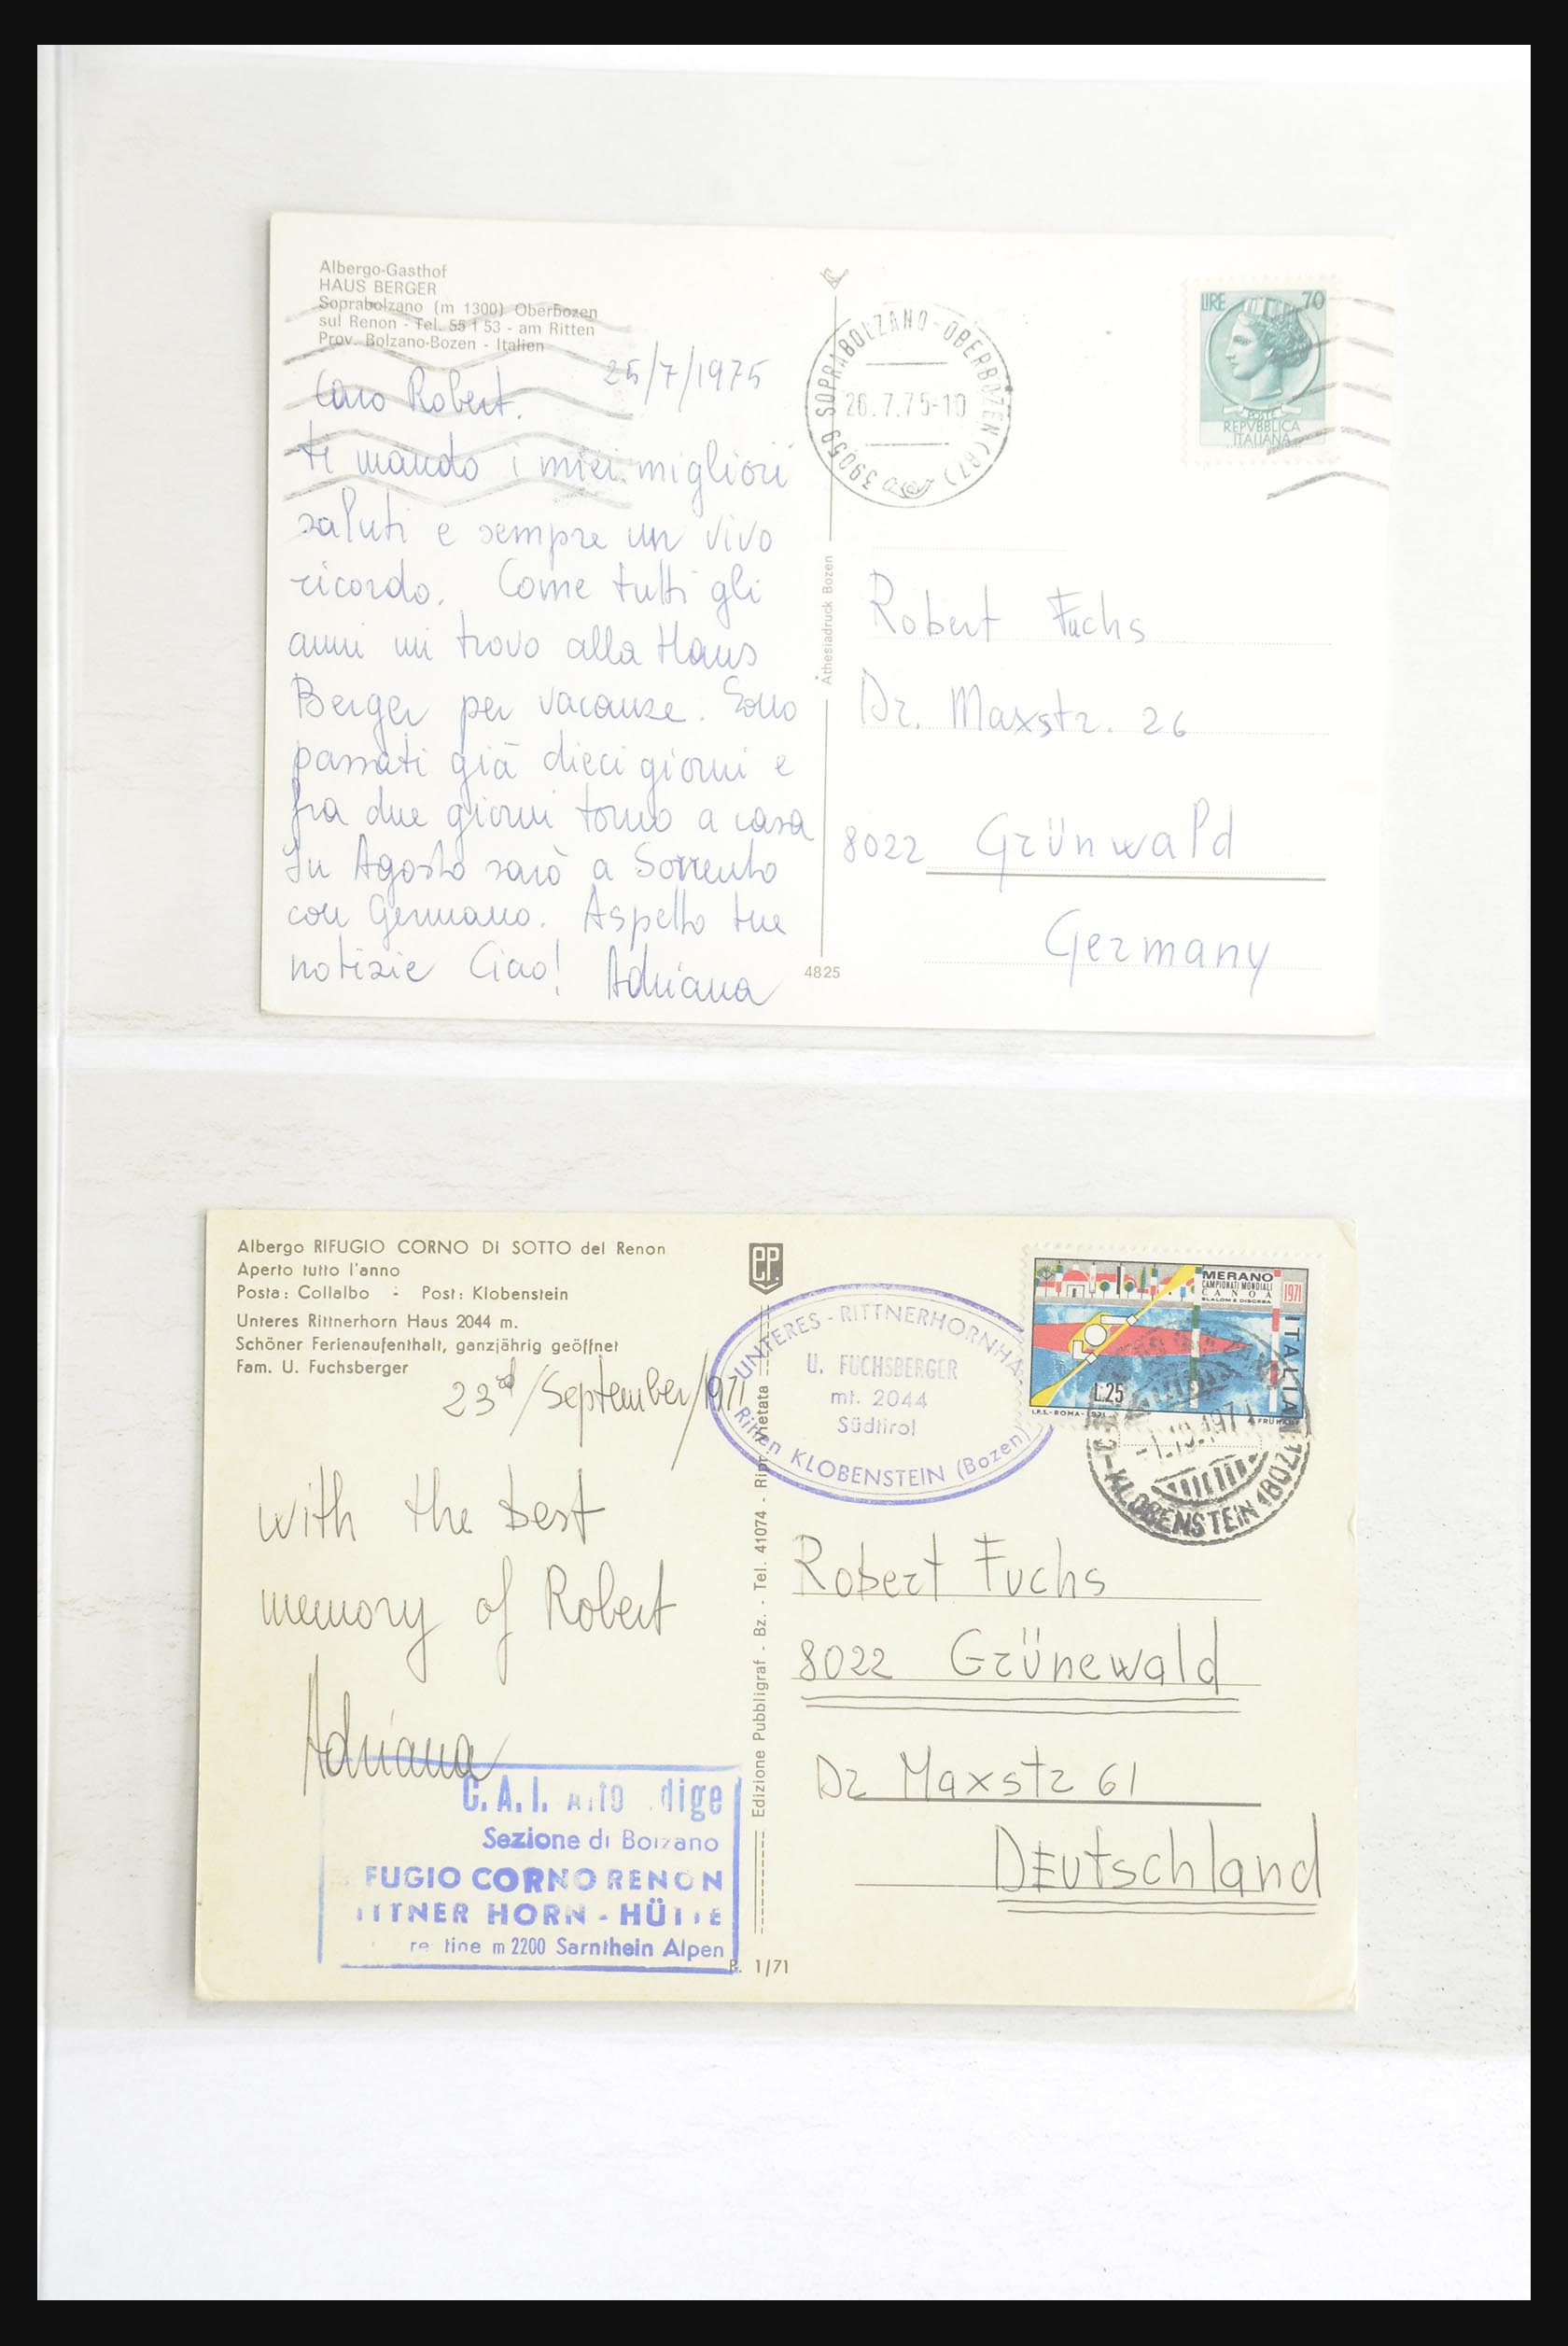 Albergo-Gasthof
HAUS BERGER
Soprabolzano (m 1300) Oberbozen
sul Renon - Tel. 55 1 53 - am Ritten
Prov. Bolzano-Bozen - Italien
25/7/1975
Caro Robert.
ti mando i miei migliori
saluti e sempre un vivo
ricordo. Come tutti gli
anni mi trovo alla Haus
Berger per vacanze. Sono
passati già dieci giorni e
fra due giorni torno a casa
In Agosto sarò a Sorrento
con Germano. Aspetto tue
notizie Ciao! Adriana
Athesiadruck Bozen
4825
39059 SOPRABOLZANO-OBERBOZEN (BZ)
26.7.75-10
LIRE 70
POSTE
REPVBBLICA
ITALIANA
Robert Fuchs
Dr. Maxstr. 26
8022 Grünwald
Germany
Albergo RIFUGIO CORNO DI SOTTO del Renon
Aperto tutto l'anno
Posta: Collalbo - Post: Klobenstein
Unteres Rittnerhorn Haus 2044 m.
Schöner Ferienaufenthalt, ganzjährig geöffnet
Fam. U. Fuchsberger
23rd/September/1971
with the best
memory of Robert
Adriana
C.A.I. Alto dige
Sezione di Bolzano
FUGIO CORNO RENON
ITTNER HORN - HÜTTE
m 2200 Sarnthein Alpen
EP.
Edizione Pubbligraf - Bz. - Tel. 41074 - Ripr. vietata
R. 1/71
UNTERES-RITTNERHORNHA
U. FUCHSBERGER
mt. 2044
Südtirol
Ritten KLOBENSTEIN (Bozen)
MERANO
CAMPIONATI MONDIALI
CANOA
SLALOM E DISCESA
1971
ITALIA
L.25
I.P.S.-ROMA-1971
-KLOBENSTEIN (BOZE
Robert Fuchs
8022 Grünewald
Dr Maxstr 61
DEutschland